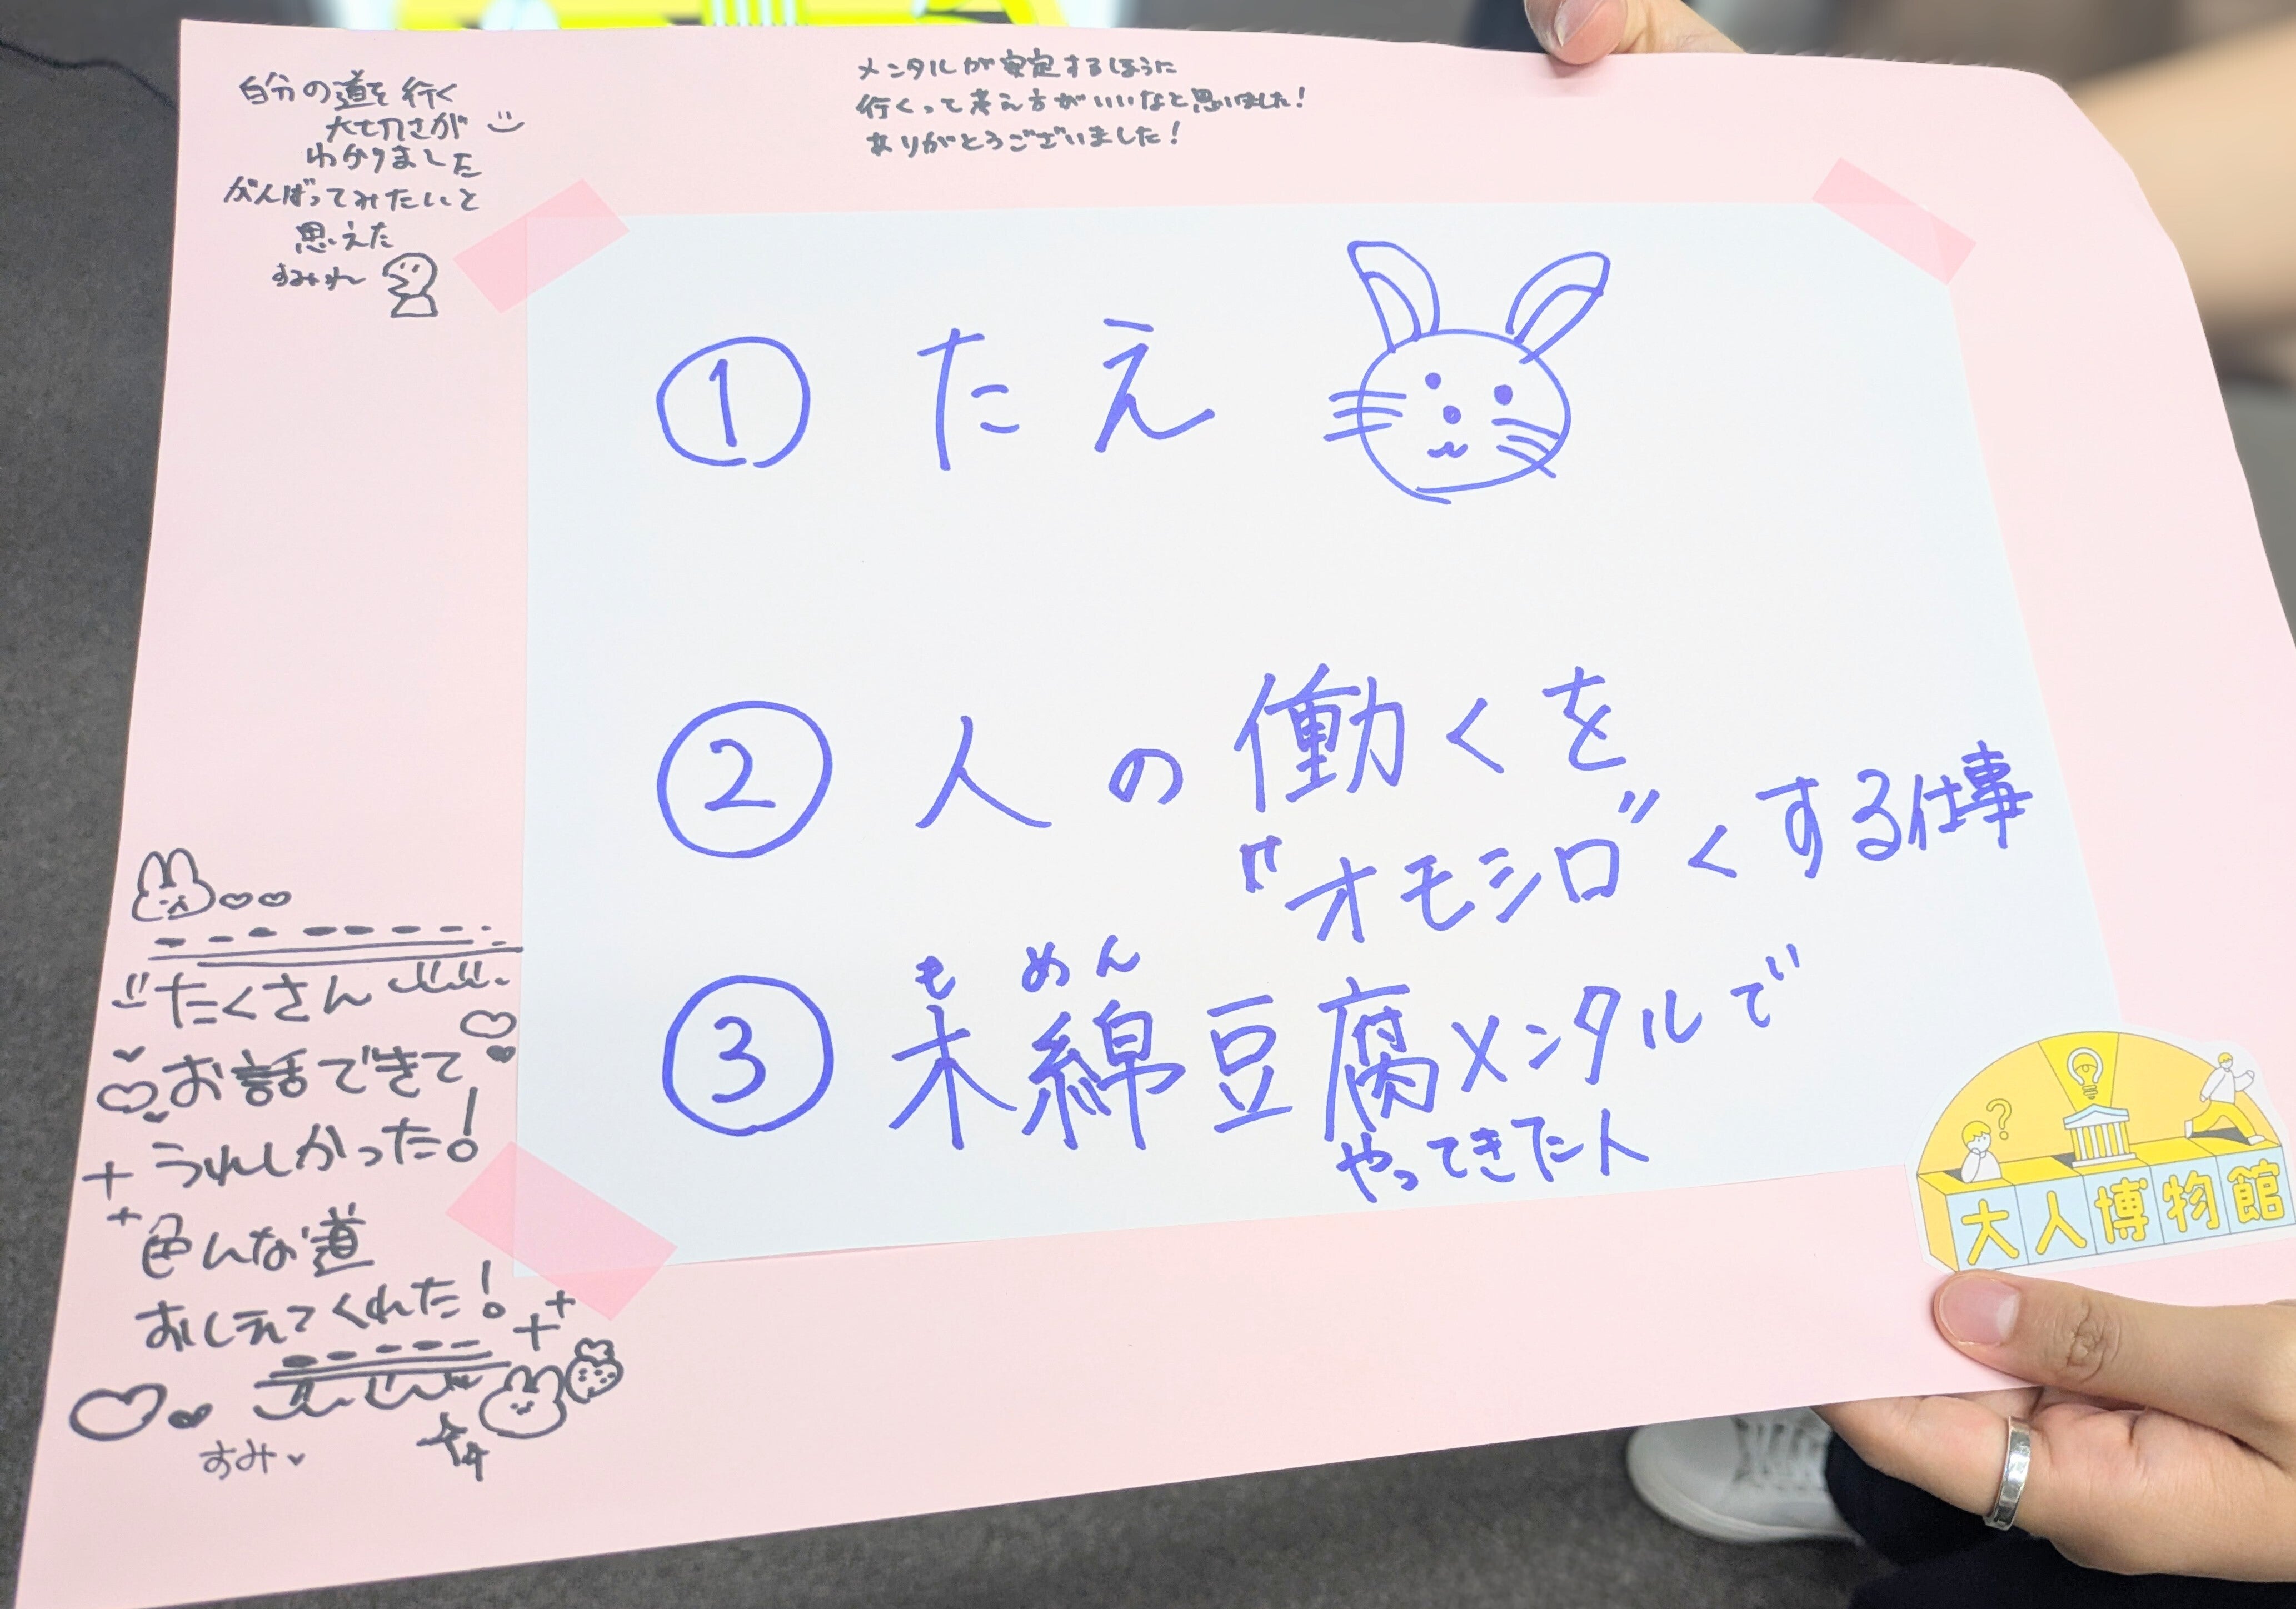 自分の道を行く
大切さが
わかりました
がんばってみたいと
思えた
メンタルが安定するほうに
行くって考え方がいいなと思いました!
ありがとうございました!
① たえ
② 人の働くを
"オモシロ"くする仕事
もめん
③ 木綿豆腐メンタルで
やってきた人
たくさん
お話できて
うれしかった!
色んな道
おしえてくれた!
すみ
大人博物館